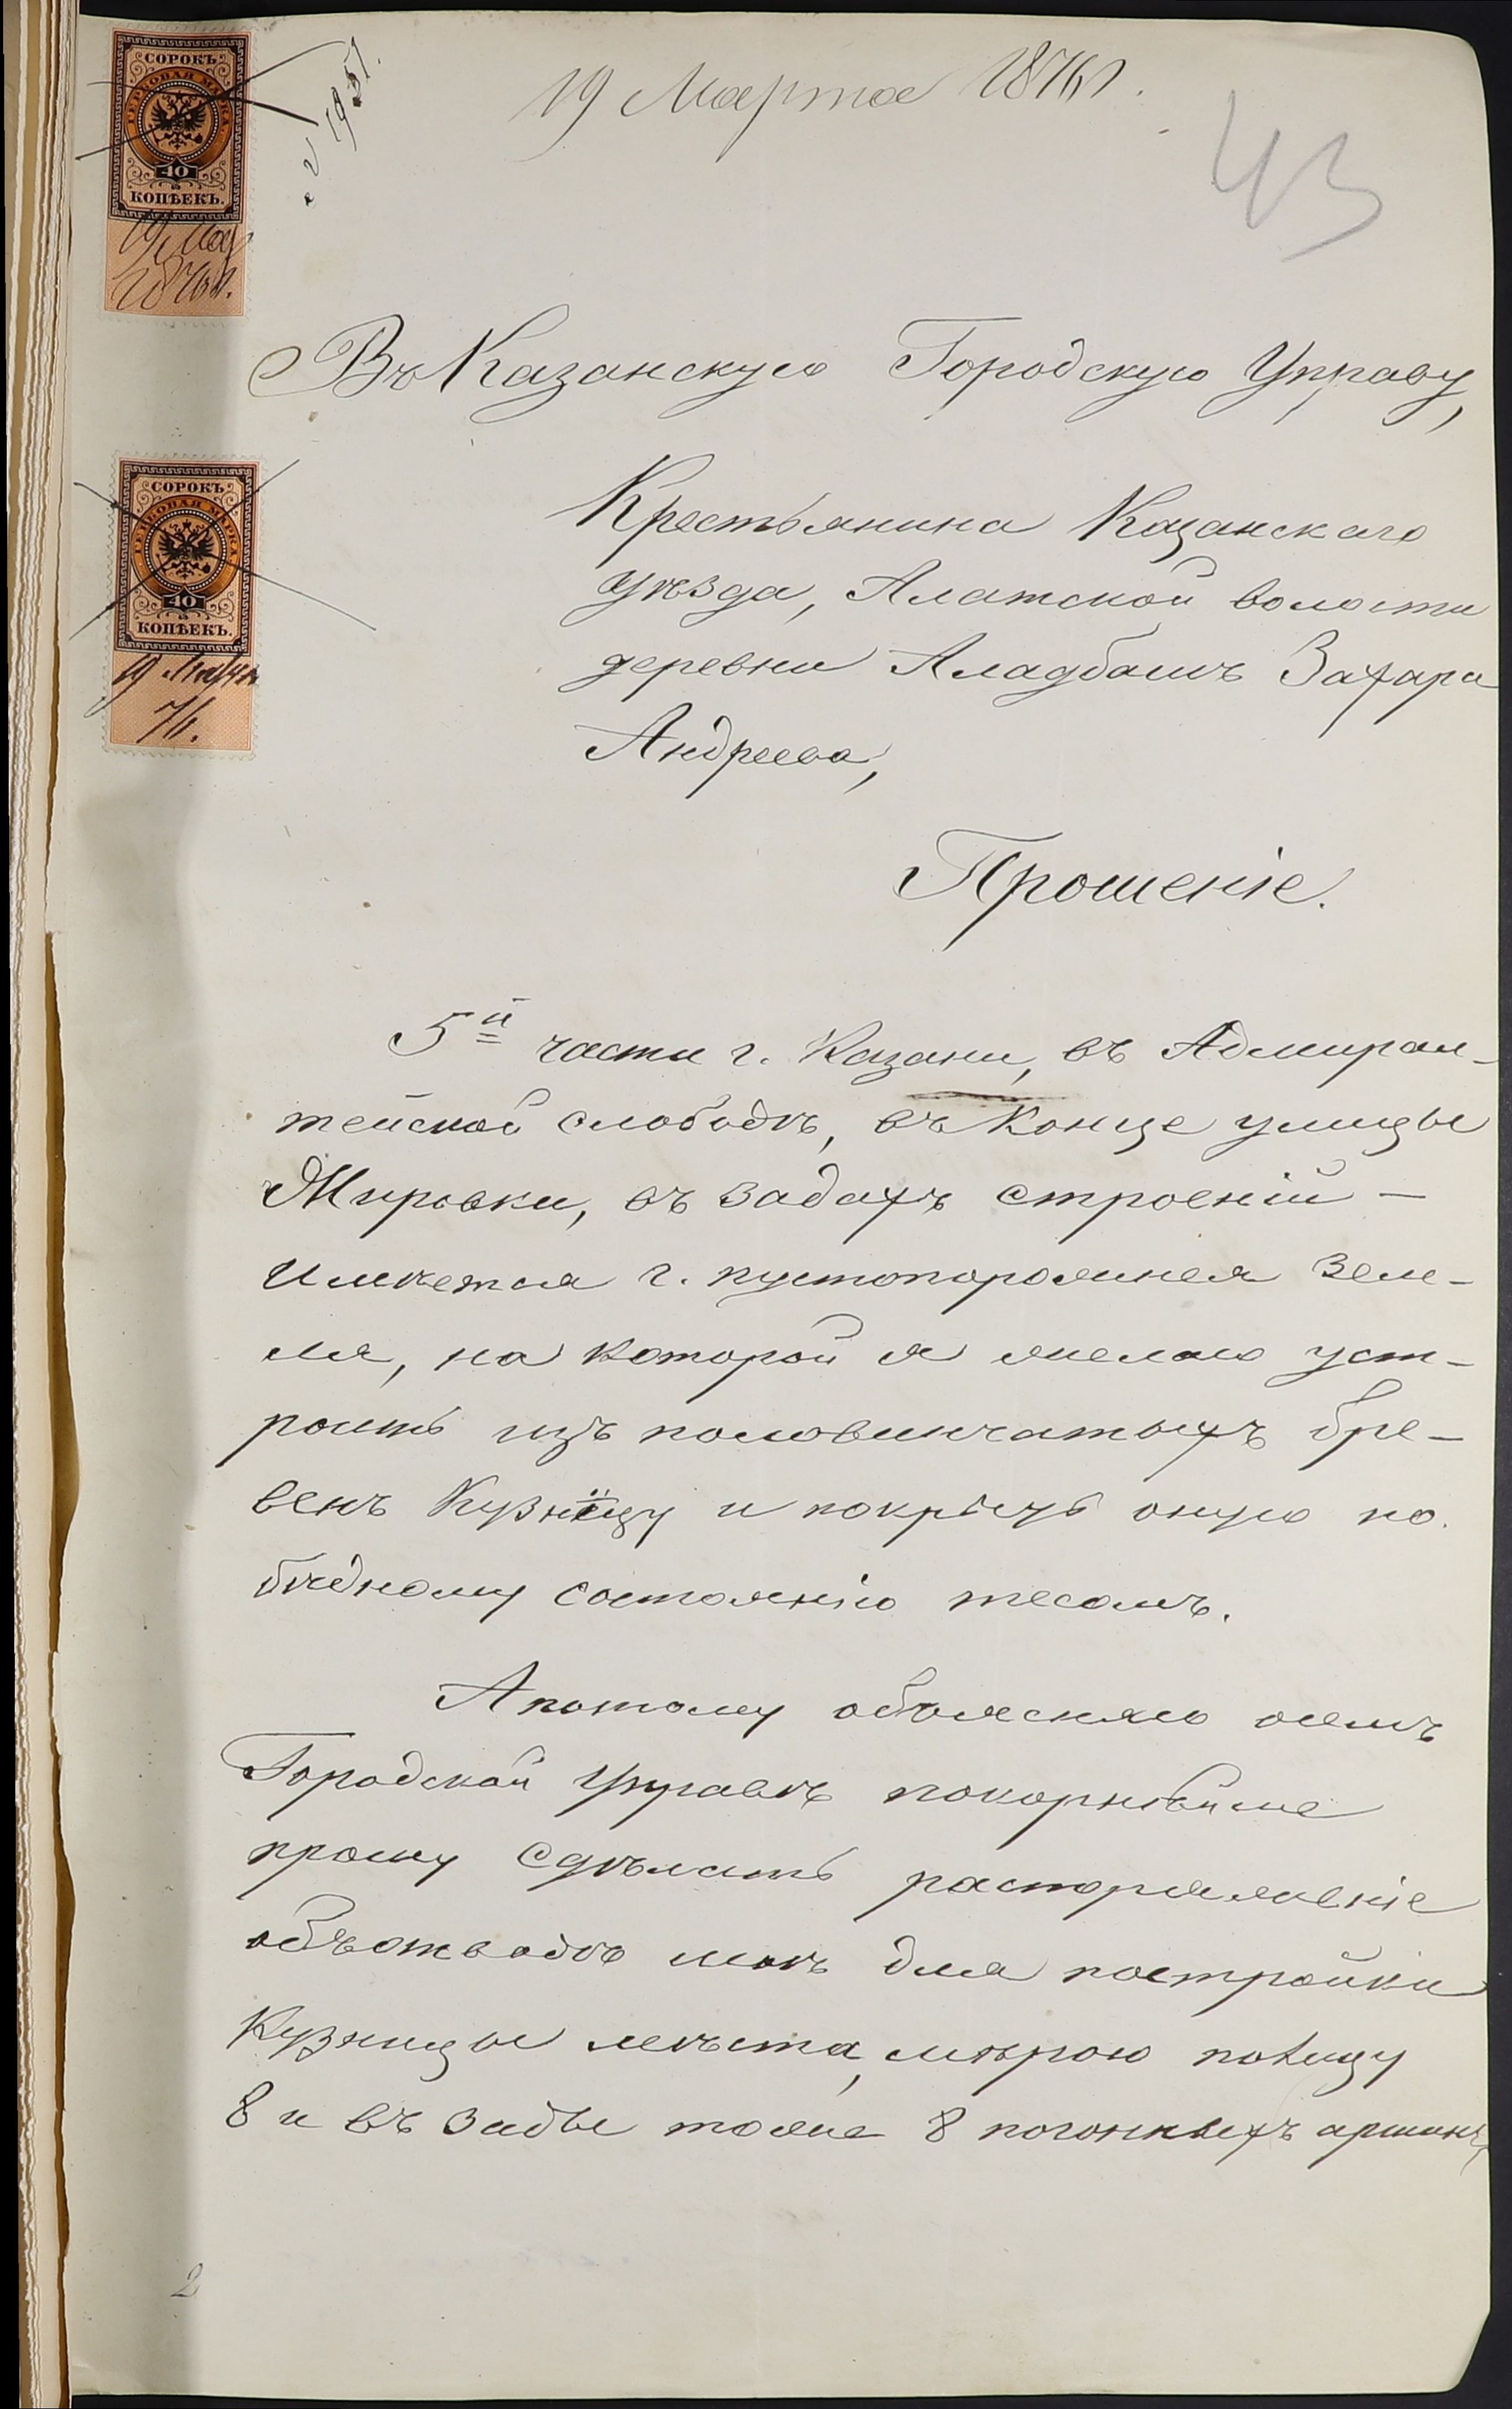 19 Марта 1876 г.
№ 1951.
43
СОРОКЪ
ГЕРБОВАЯ МАРКА
40
КОПѢЕКЪ.
19 Мар
1876 г.
Въ Казанскую Городскую Управу,
СОРОКЪ
ГЕРБОВАЯ МАРКА
40
КОПѢЕКЪ.
19 Марта
76.
Крестьянина Казанскаго
уѣзда, Алатской волости
деревни Захара
Андреева,
Прошеніе.
5й части г. Казани, въ Адмирал-
тейской слободѣ, въ Конце улицы
Жировки, въ задахъ строеній –
имѣется г. пустопорожнея зем-
ля, на которой я желаю уст-
роить изъ половинчатыхъ бре-
венъ Кузницу и покрыть оную по
бѣдному состоянію тесомъ.
А потому объясняю осемъ
Городской Управѣ покорнѣйше
прошу сдѣлать распоряженіе
объотводѣ мнѣ для постройки
Кузницы мѣста, мѣрою полицу
8 и въ задье тоже 8 погонныхъ аршинъ,
2